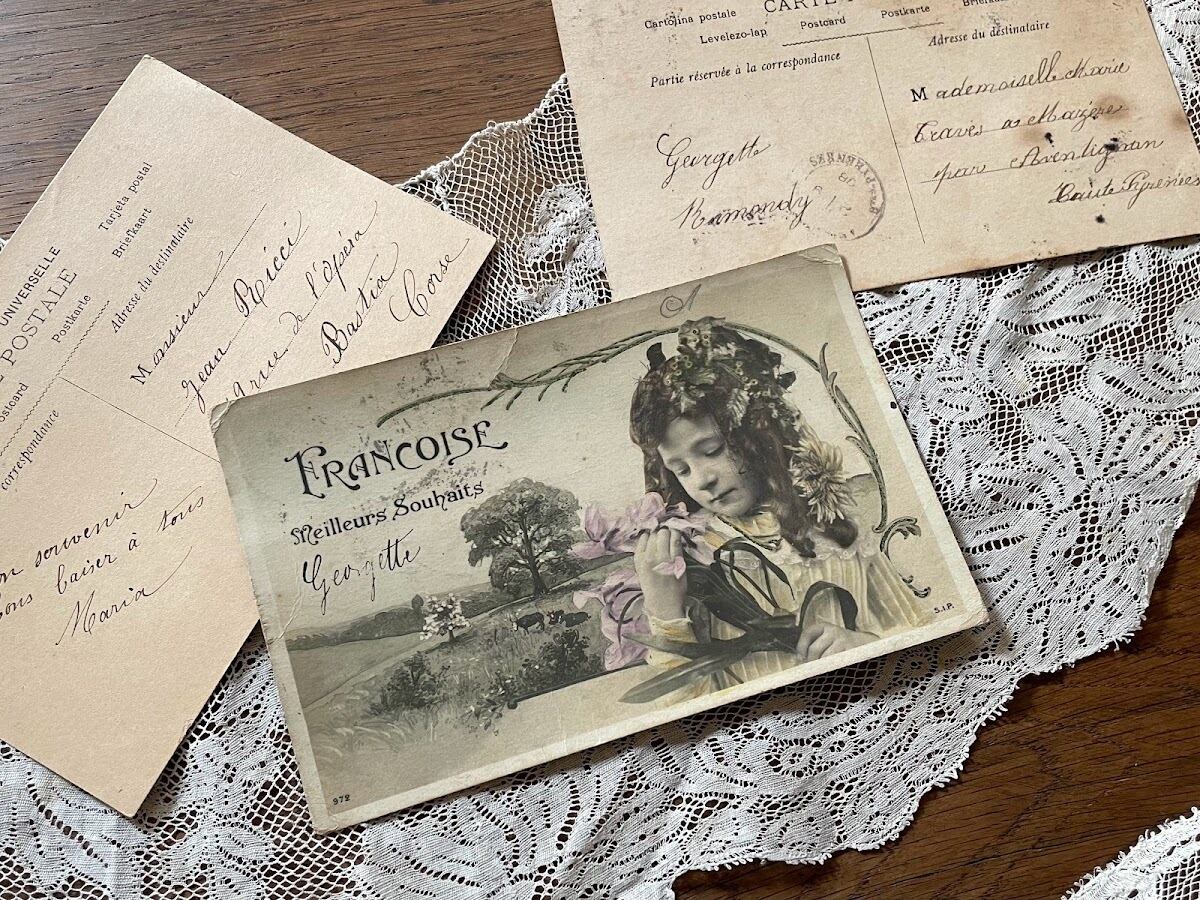 UNIVERSELLE
POSTALE
Postcard Postkarte
Briefkaart
Tarjeta postal
correspondance
Adresse du destinataire
Monsieur
Jean Ricci
rue de l'opéra
Bastia
Corse
souvenir
baiser à tous
Maria
CARTE
Cartolina postale Postcard Postkarte
Levelezo-lap
Partie réservée à la correspondance
Adresse du destinataire
Georgette
Ramondy
Mademoiselle Marie
par Aventignan
Haute Pyrénées
FRANCOISE
Meilleurs Souhaits
Georgette
S.I.P.
972